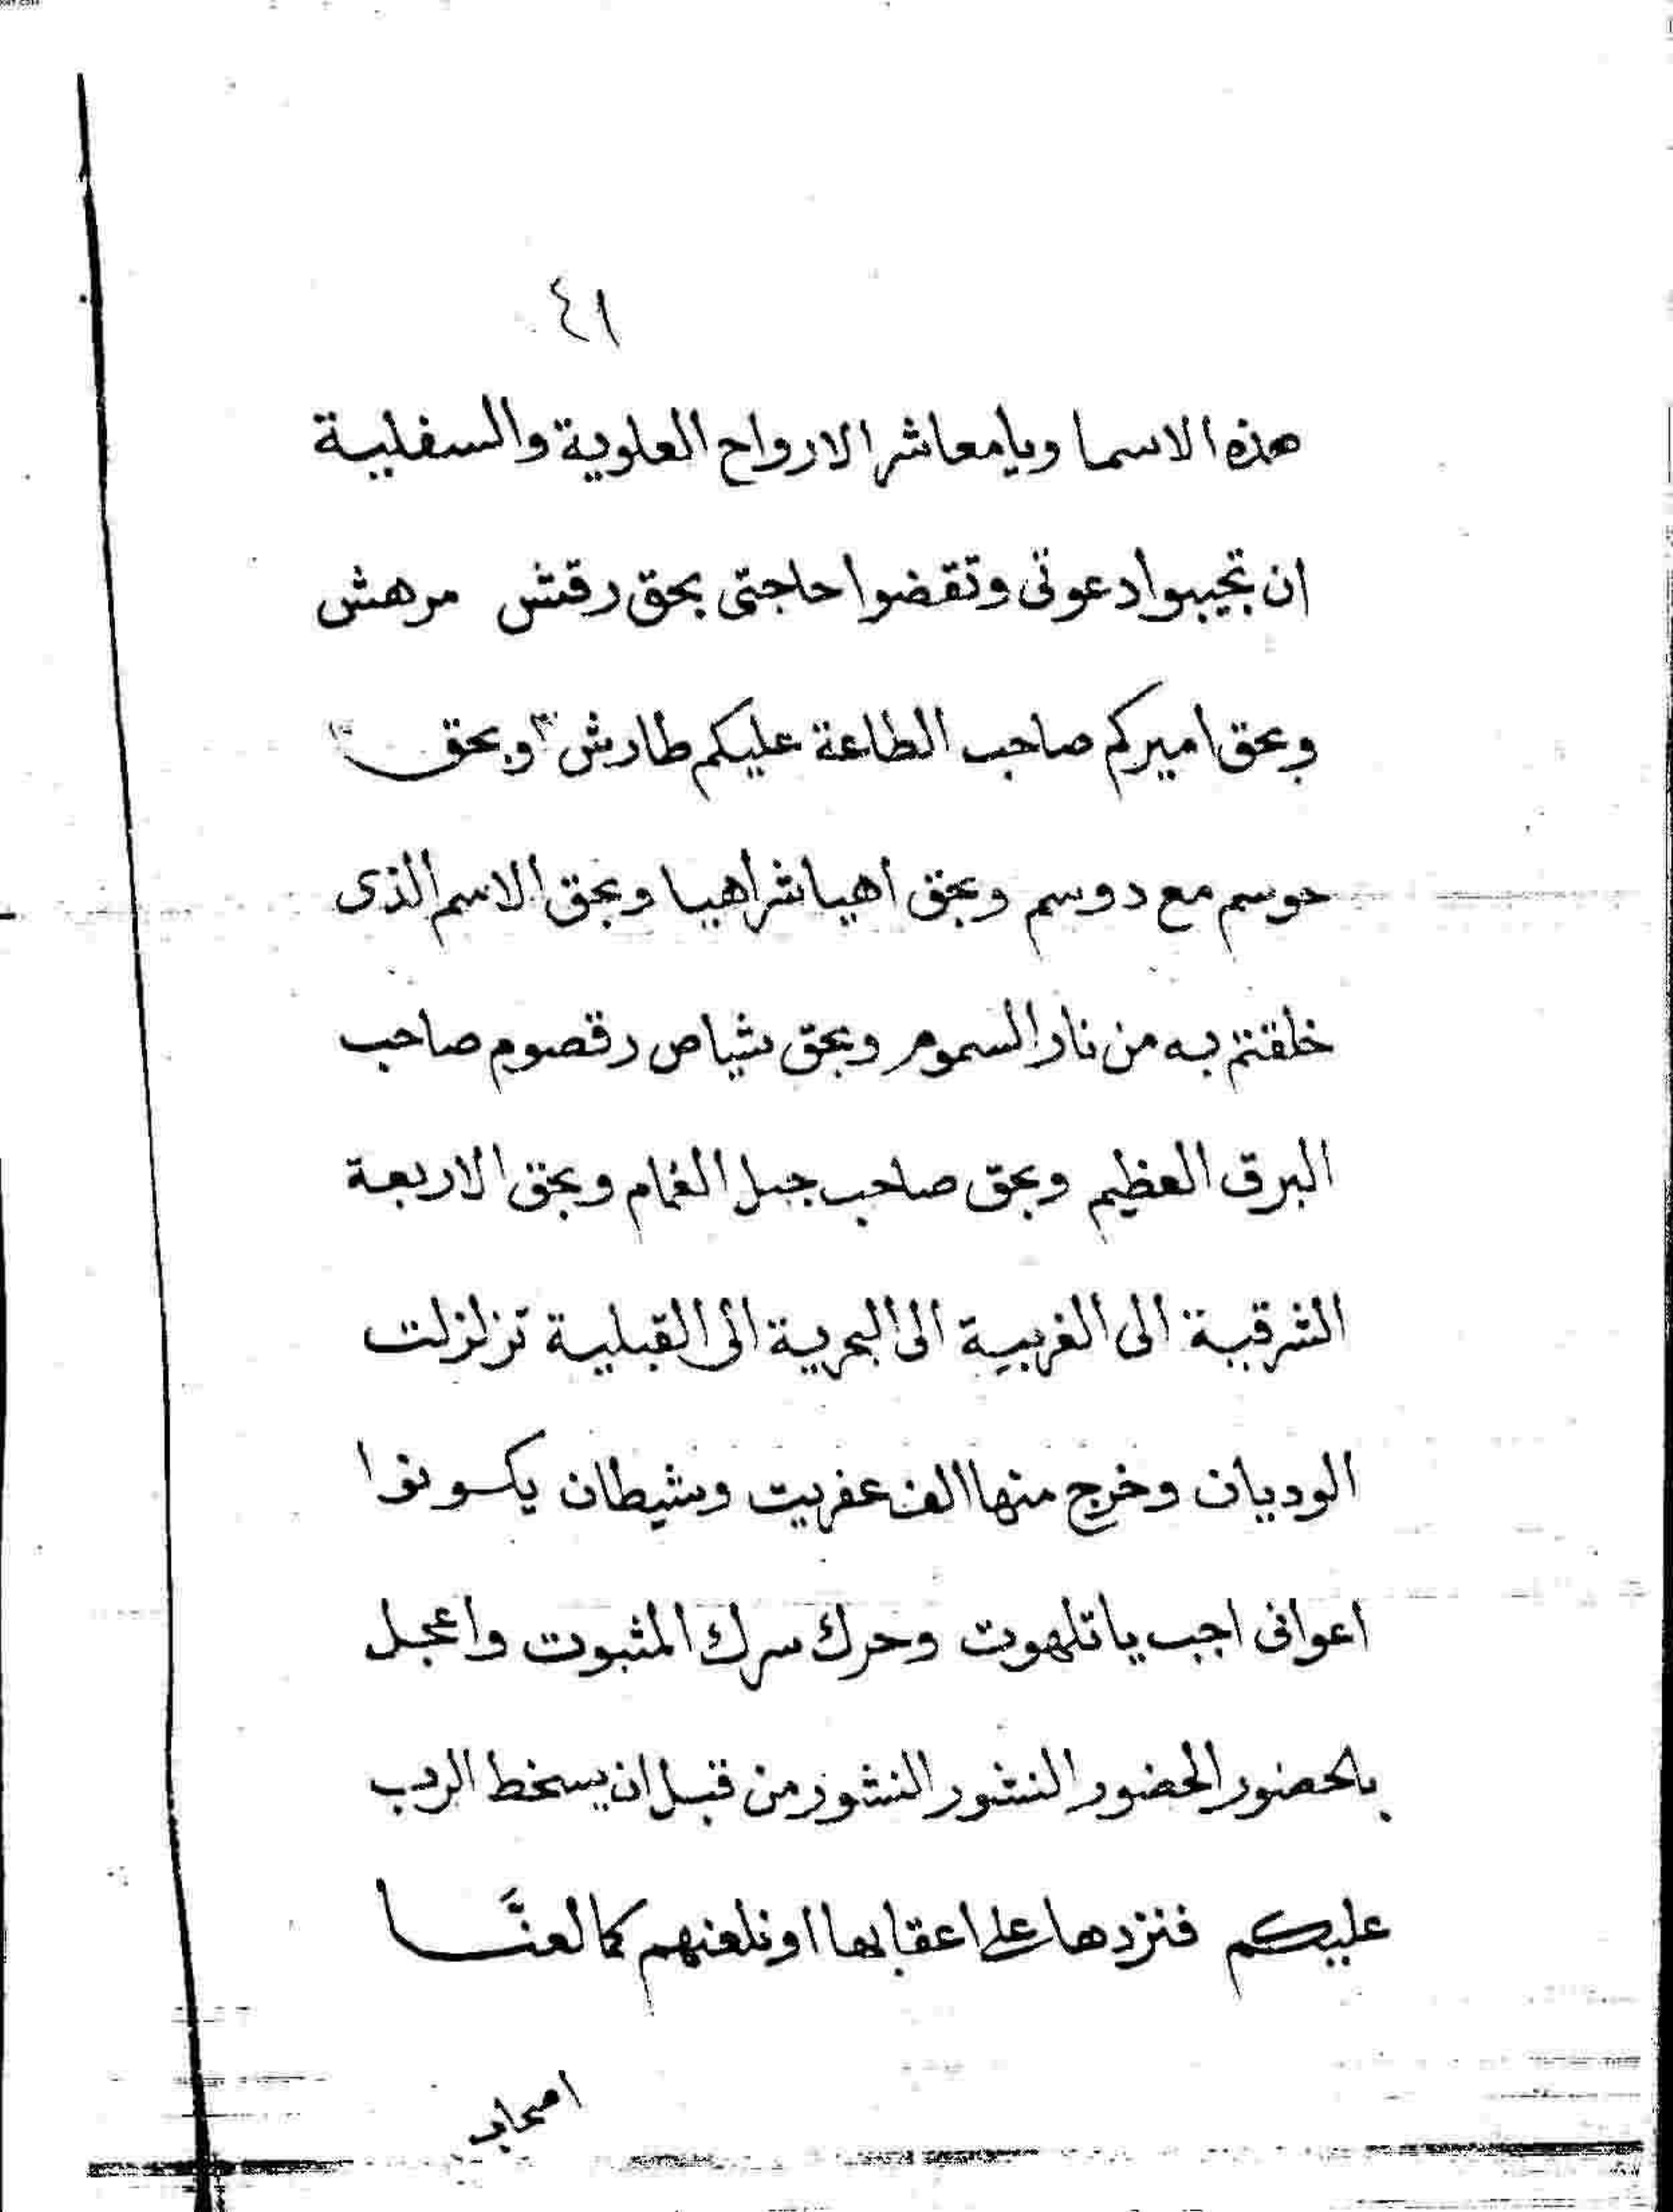 ٤١
هذه الاسما ويا معاشر الارواح العلوية والسفلية
ان تجيبوا دعوتى وتقضوا حاجتى بحق رقش مرهش
وبحق اميركم صاحب الطاعة عليكم طارش وبحق
حوسم مع دوسم وبحق اهيا شراهيا وبحق الاسم الذى
خلقتم به من نار السموم وبحق شياص رقصوم صاحب
البرق العظيم وبحق صاحب جبل الغمام وبحق الاربعة
الشرقية الى الغربية الى البحرية الى القبلية تزلزلت
الوديان وخرج منها الف عفريت وشيطان يكونوا
اعوانى اجب يا تلهوت وحرك سرك المثبوت واعجل
بالحضور الحضور النشور النشور من قبل ان يسخط الرب
عليكم فنزدها على اعقابها او نلعنهم كما لعنَّا
اصحاب